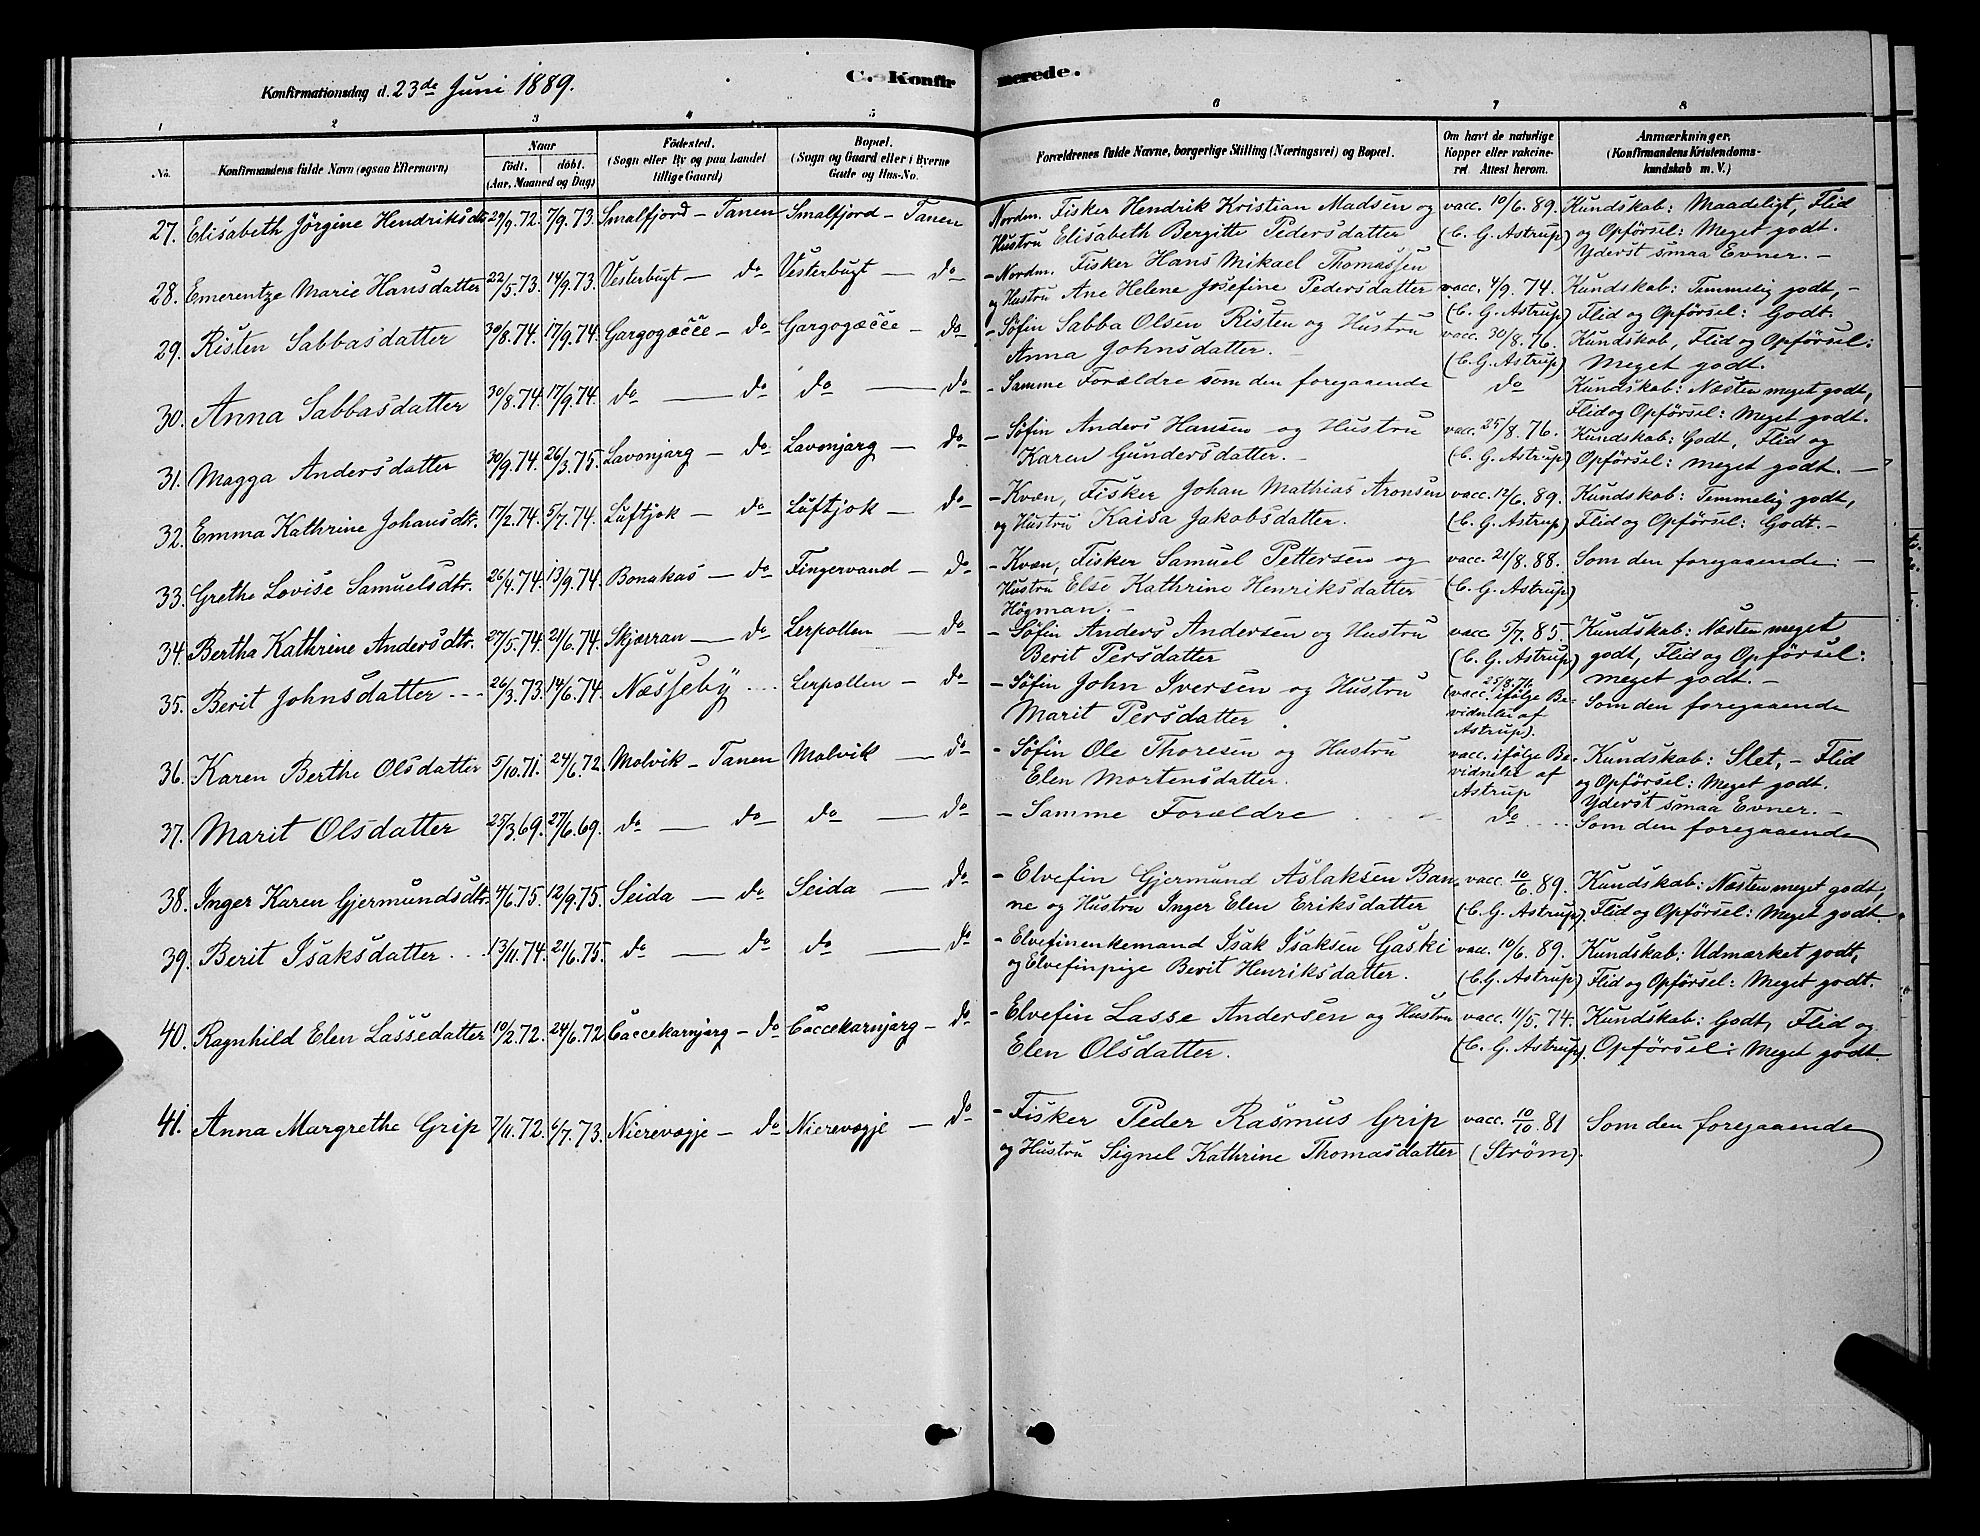 Konfirmationsdag d. 23de Juni 1889.
C. Konfirmerede.
1 2 3 4 5 6 7 8
No. Konfirmandens fulde Navn (ogsaa Efternavn) Naar födt. döbt. (Aar, Maaned og Dag) Födested. (Sogn eller By og paa Landet tillige Gaard) Bopæl. (Sogn og Gaard eller i Byerne Gade og Hus-No. Forældrenes fulde Navne, borgerlige Stilling (Næringsvei) og Bopæl. Om havt de naturlige Kopper eller vakcineret Attest herom. Anmærkninger. (Konfirmandens Kristendomskundskab m. V.)
27. Elisabeth Jörgine Hendriksdtr 29/9.72. 7/9.73. Smalfjord – Tanen Smalfjord – Tanen Nordm. Fisker Hendrik Kristian Madsen og vacc. 10/6.89. Kundskab: Maadeligt, Flid
Hustru Elisabeth Bergitte Pedersdatter (C. G. Astrup) og Opförsel: Meget godt.
Yderst smaa Evner. –
28. Emerentze Marie Hansdatter 22/5.73. 14/9.73. Vesterbugt – do Vesterbugt – do – Nordm. Fisker Hans Mikael Thomassen
og Hustru Ane Helene Josefine Pedersdatter vacc. 4/9.74. Kundskab: Temmelig godt, –
(C. G. Astrup) Flid og Opförsel: Godt.
29. Risten Sabbasdatter 30/8.74. 17/9.74. Gargogæčče – do Gargogæčče – do – Söfin Sabba Olsen Risten og Hustru vacc. 30/8.76. Kundskab, Flid og Opförsel:
Anna Johnsdatter. – (C. G. Astrup) Meget godt.
30. Anna Sabbasdatter 30/8.74. 17/9.74. do – do do – do – Samme Forældre som den foregaaende do Kundskab: Næsten meget godt,
Flid og Opförsel: Meget godt.
31. Magga Andersdatter 30/9.74. 26/3.75. Lavonjarg – do Lavonjarg – do – Söfin Anders Hansen og Hustru vacc. 25/8.76. Kundskab: Godt, Flid og
Karen Gundersdatter. – (C. G. Astrup) Opförsel: meget godt. –
32. Emma Kathrine Johansdtr. 17/2.74. 5/7.74. Luftjok – do Luftjok – do – Kvæn, Fisker Johan Mathias Aronsen vacc. 12/6.89. Kundskab: Temmelig godt,
og Hustru Kaisa Jakobsdatter. (C. G. Astrup) Flid og Opförsel: Godt. –
33. Grethe Lovise Samuelsdtr. 26/4.74. 13/9.74. Bonakas – do Fingervand – do – Kvæn, Fisker Samuel Pettersen og vacc. 21/8.88. Som den foregaaende: –
Hustru Else Kathrine Henriksdatter (C. G. Astrup)
Högman. –
34. Bertha Kathrine Andersdtr. 27/5.74. 21/6.74. Skjærran – do Lerpollen – do – Söfin Anders Andersen og Hustru vacc. 5/7.85. Kundskab: Næsten meget
Berit Persdatter (C. G. Astrup) godt, Flid og Opförsel:
meget godt. –
35. Berit Johnsdatter 26/3.73. 14/6.74. Næsseby Lerpollen – do – Söfin John Iversen og Hustru 25/8.76 (vacc. ifölge Be- Som den foregaaende
Marit Persdatter. vidnelse af
Astrup).
36. Karen Berthe Olsdatter 5/10.71. 24/6.72. Molvik – Tanen Molvik – do – Söfin Ole Thoresen og Hustru vacc. ifölge Be- Kundskab: Slet, – Flid
Elen Mortensdatter. vidnelse af og Opförsel: Meget godt.
Astrup Yderst smaa Evner. –
37. Marit Olsdatter 25/3.69. 27/6.69. do – do do – do – Samme Forældre do Som den foregaaende
38. Inger Karen Gjermundsdtr. 4/6.75. 12/9.75. Seida – do Seida – do – Elvefin Gjermund Aslaksen Ban- vacc. 10/6.89. Kundskab: Næsten meget godt,
ne og Hustru Inger Elen Eriksdatter (C. G. Astrup). Flid og Opförsel: Meget godt.
39. Berit Isaksdatter 13/11.74. 21/6.75. do – do do – do – Elvefinenkemand Isak Isaksen Gaski vacc. 10/6.89. Kundskab: Udmærket godt,
og Elvefinpige Berit Henriksdatter. (C. G. Astrup) Flid og Opförsel: Meget godt.
40. Ragnhild Elen Lassedatter 19/2.72. 24/6.72 Caccekarnjarg – do Caccekarnjarg – do – Elvefin Lasse Andersen og Hustru vacc. 11/5.74. Kundskab: Godt, Flid og
Elen Olsdatter. (C. G. Astrup). Opförsel: Meget godt.
41. Anna Margrethe Grip 7/11.72. 6/7.73. Nierevagje – do Nierevagje – do – Fisker Peder Rasmus Grip vacc. 10/10.81 Som den foregaaende
og Hustru Signel Kathrine Thomasdatter (Ström).